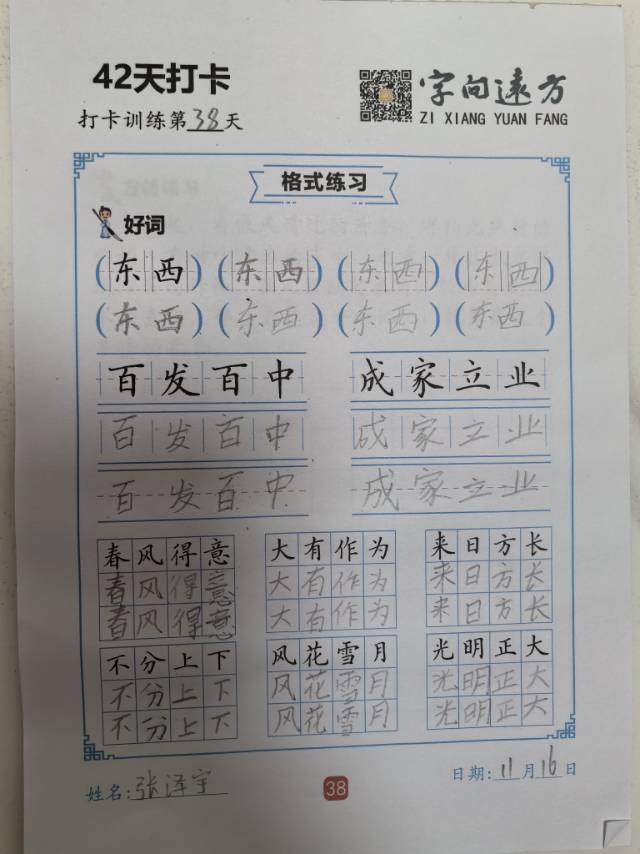 42天打卡
字向远方
打卡训练第38天
ZI XIANG YUAN FANG
格式练习
好词
(东西) (东西) (东西) (东西)
(东西) (东西) (东西) (东西)
百发百中 成家立业
百发百中 成家立业
百发百中 成家立业
春风得意 大有作为 来日方长
春风得意 大有作为 来日方长
春风得意 大有作为 来日方长
不分上下 风花雪月 光明正大
不分上下 风花雪月 光明正大
不分上下 风花雪月 光明正大
姓名:张泽宇 38 日期:11月16日